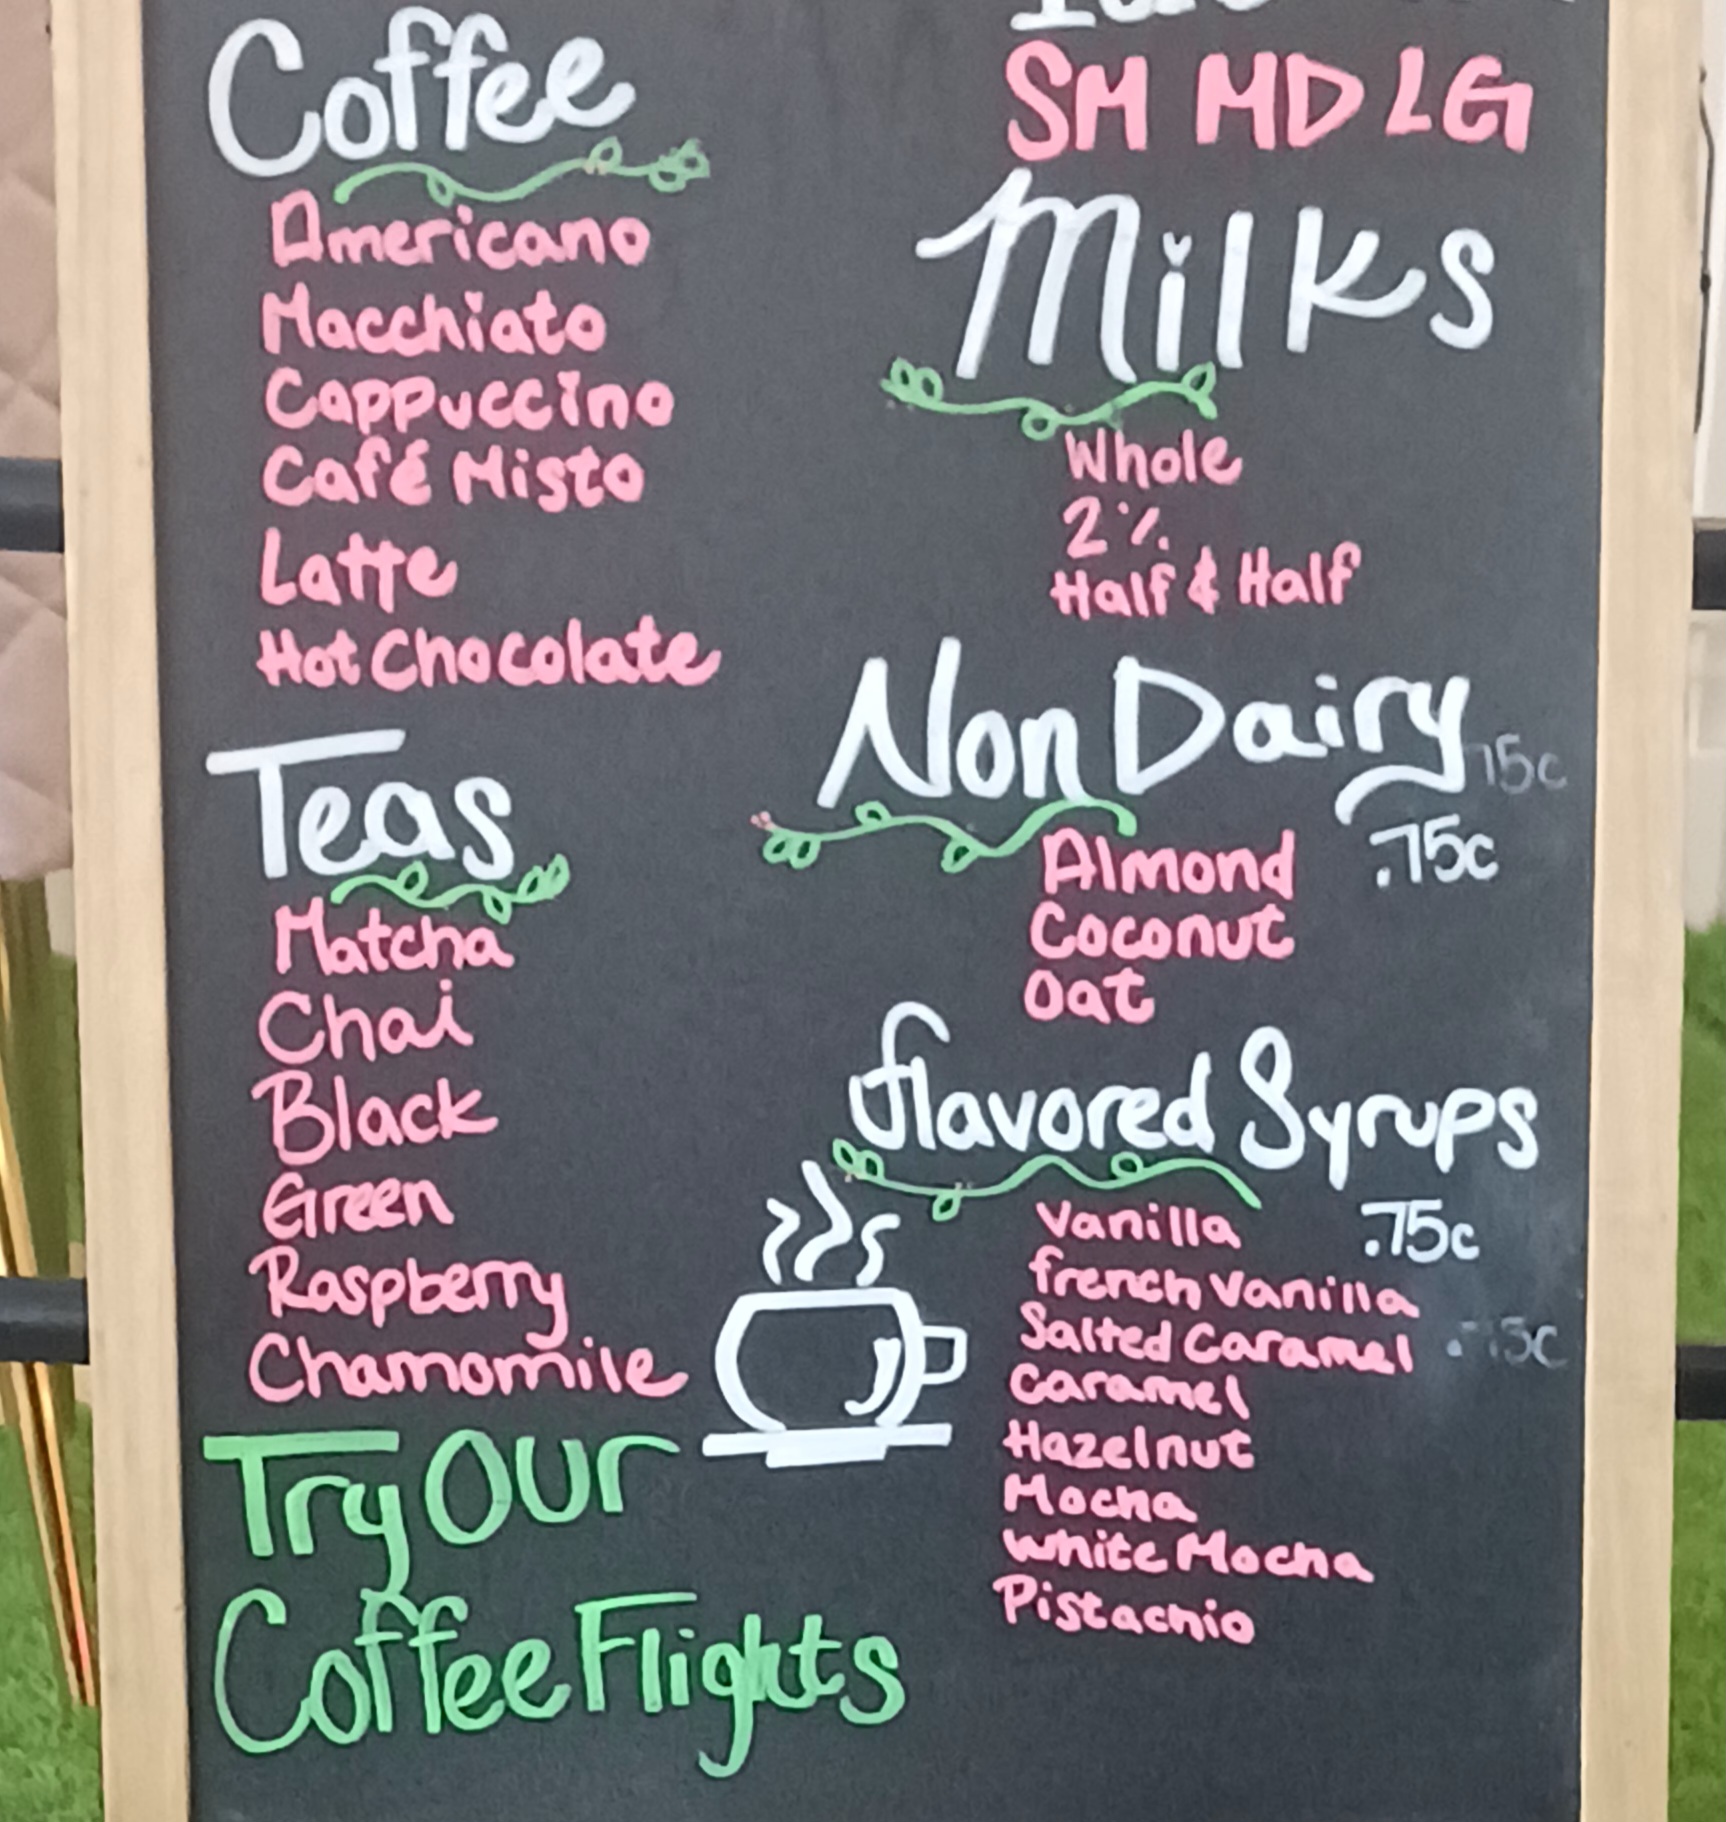 Coffee
Americano
Macchiato
Cappuccino
Café Misto
Latte
Hot Chocolate
Teas
Matcha
Chai
Black
Green
Raspberry
Chamomile
Try Our
Coffee Flights
SM MD LG
Milks
Whole
2%
Half & Half
Non Dairy
15c
.75c
Almond
Coconut
Oat
Flavored Syrups
.75c
Vanilla
French Vanilla
Salted Caramel
Caramel
Hazelnut
Mocha
White Mocha
Pistachio